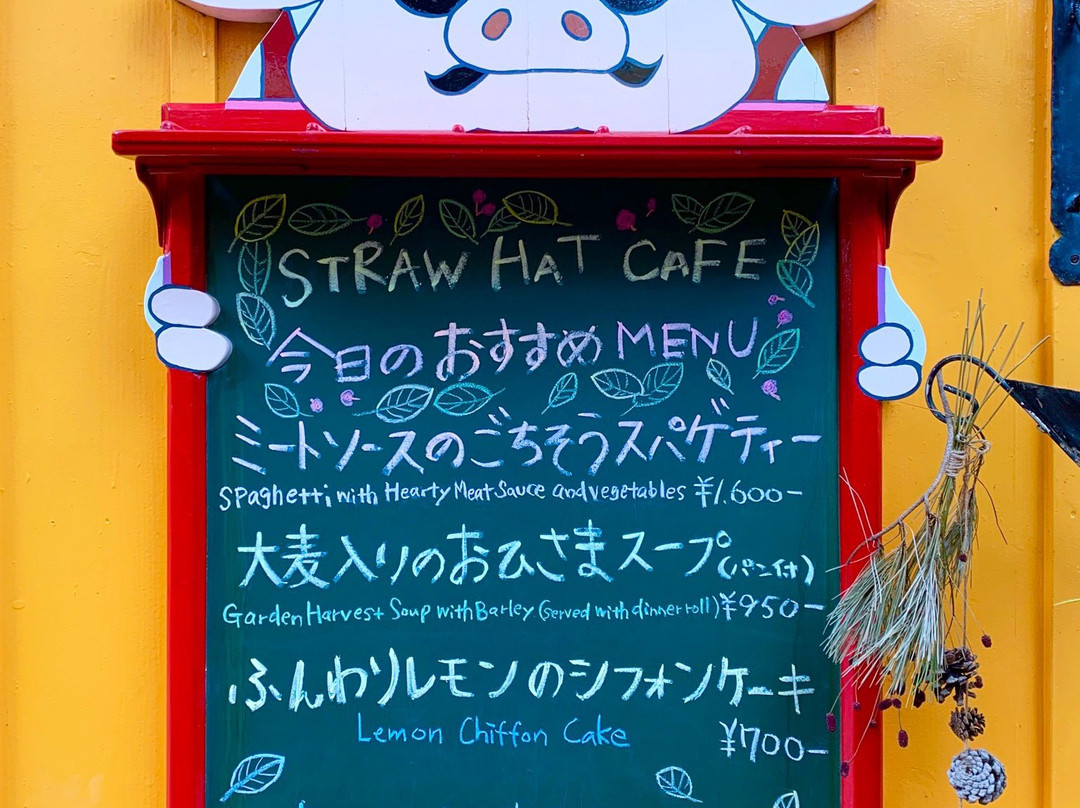 STRAW HAT CAFE
今日のおすすめMENU
ミートソースのごちそうスパゲティー
Spaghetti with Hearty Meat Sauce and vegetables ¥1.600-
大麦入りのおひさまスープ(パン付)
Garden Harvest Soup with Barley (served with dinner roll) ¥950-
ふんわりレモンのシフォンケーキ
Lemon Chiffon Cake ¥700-